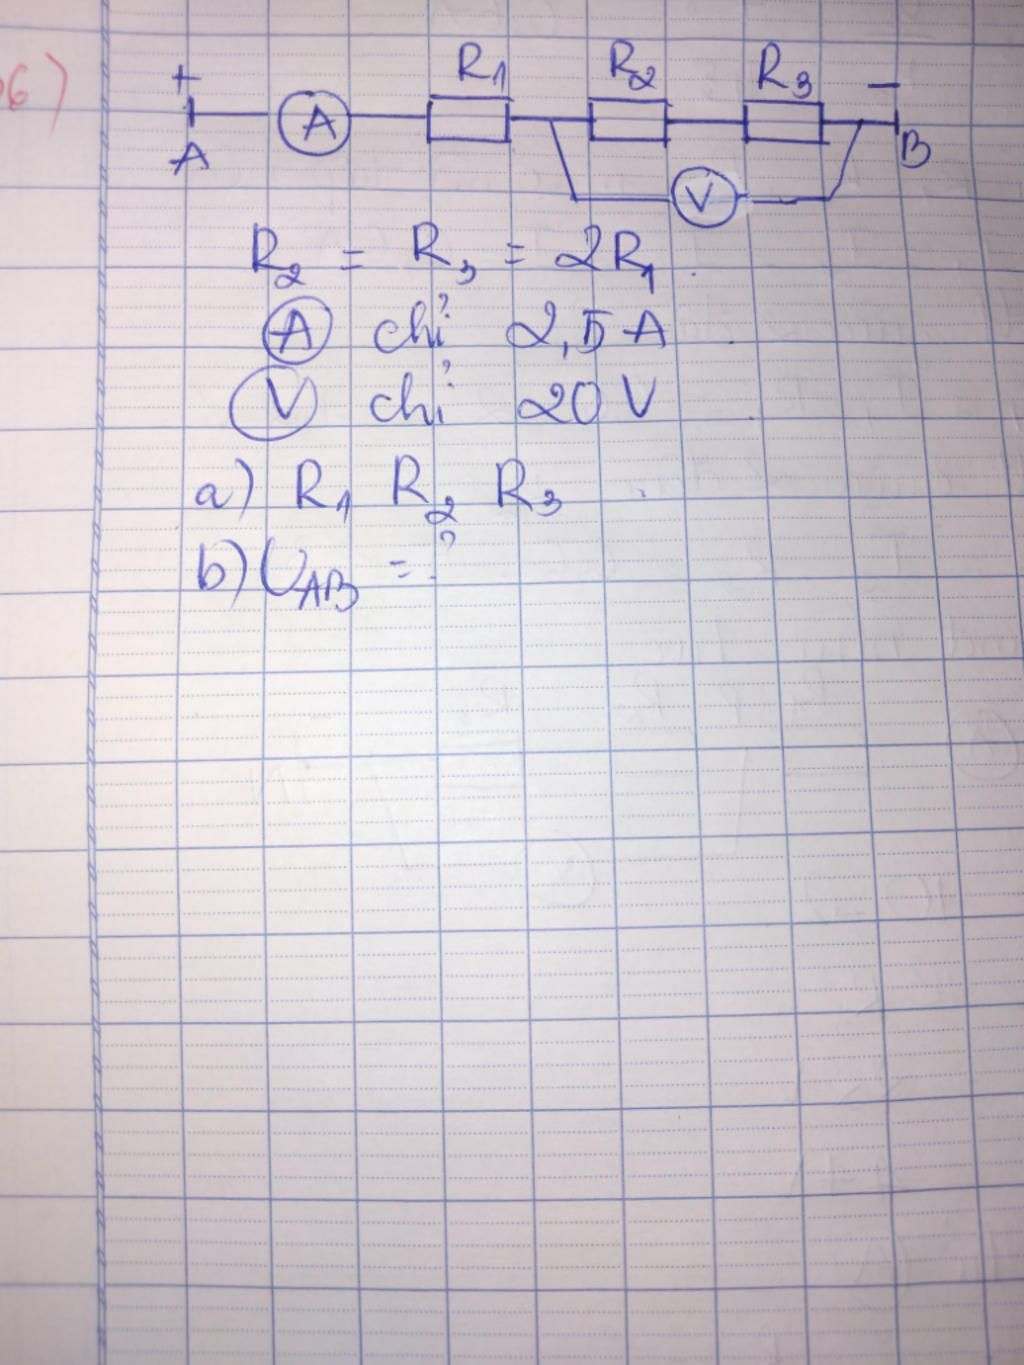 06)
R1 R2 R3
+ -
A
A B
V
R2 = R3 = 2R1.
A chỉ 2,5 A.
V chỉ 20 V
a) R1 R2 R3
b) UAB = ?